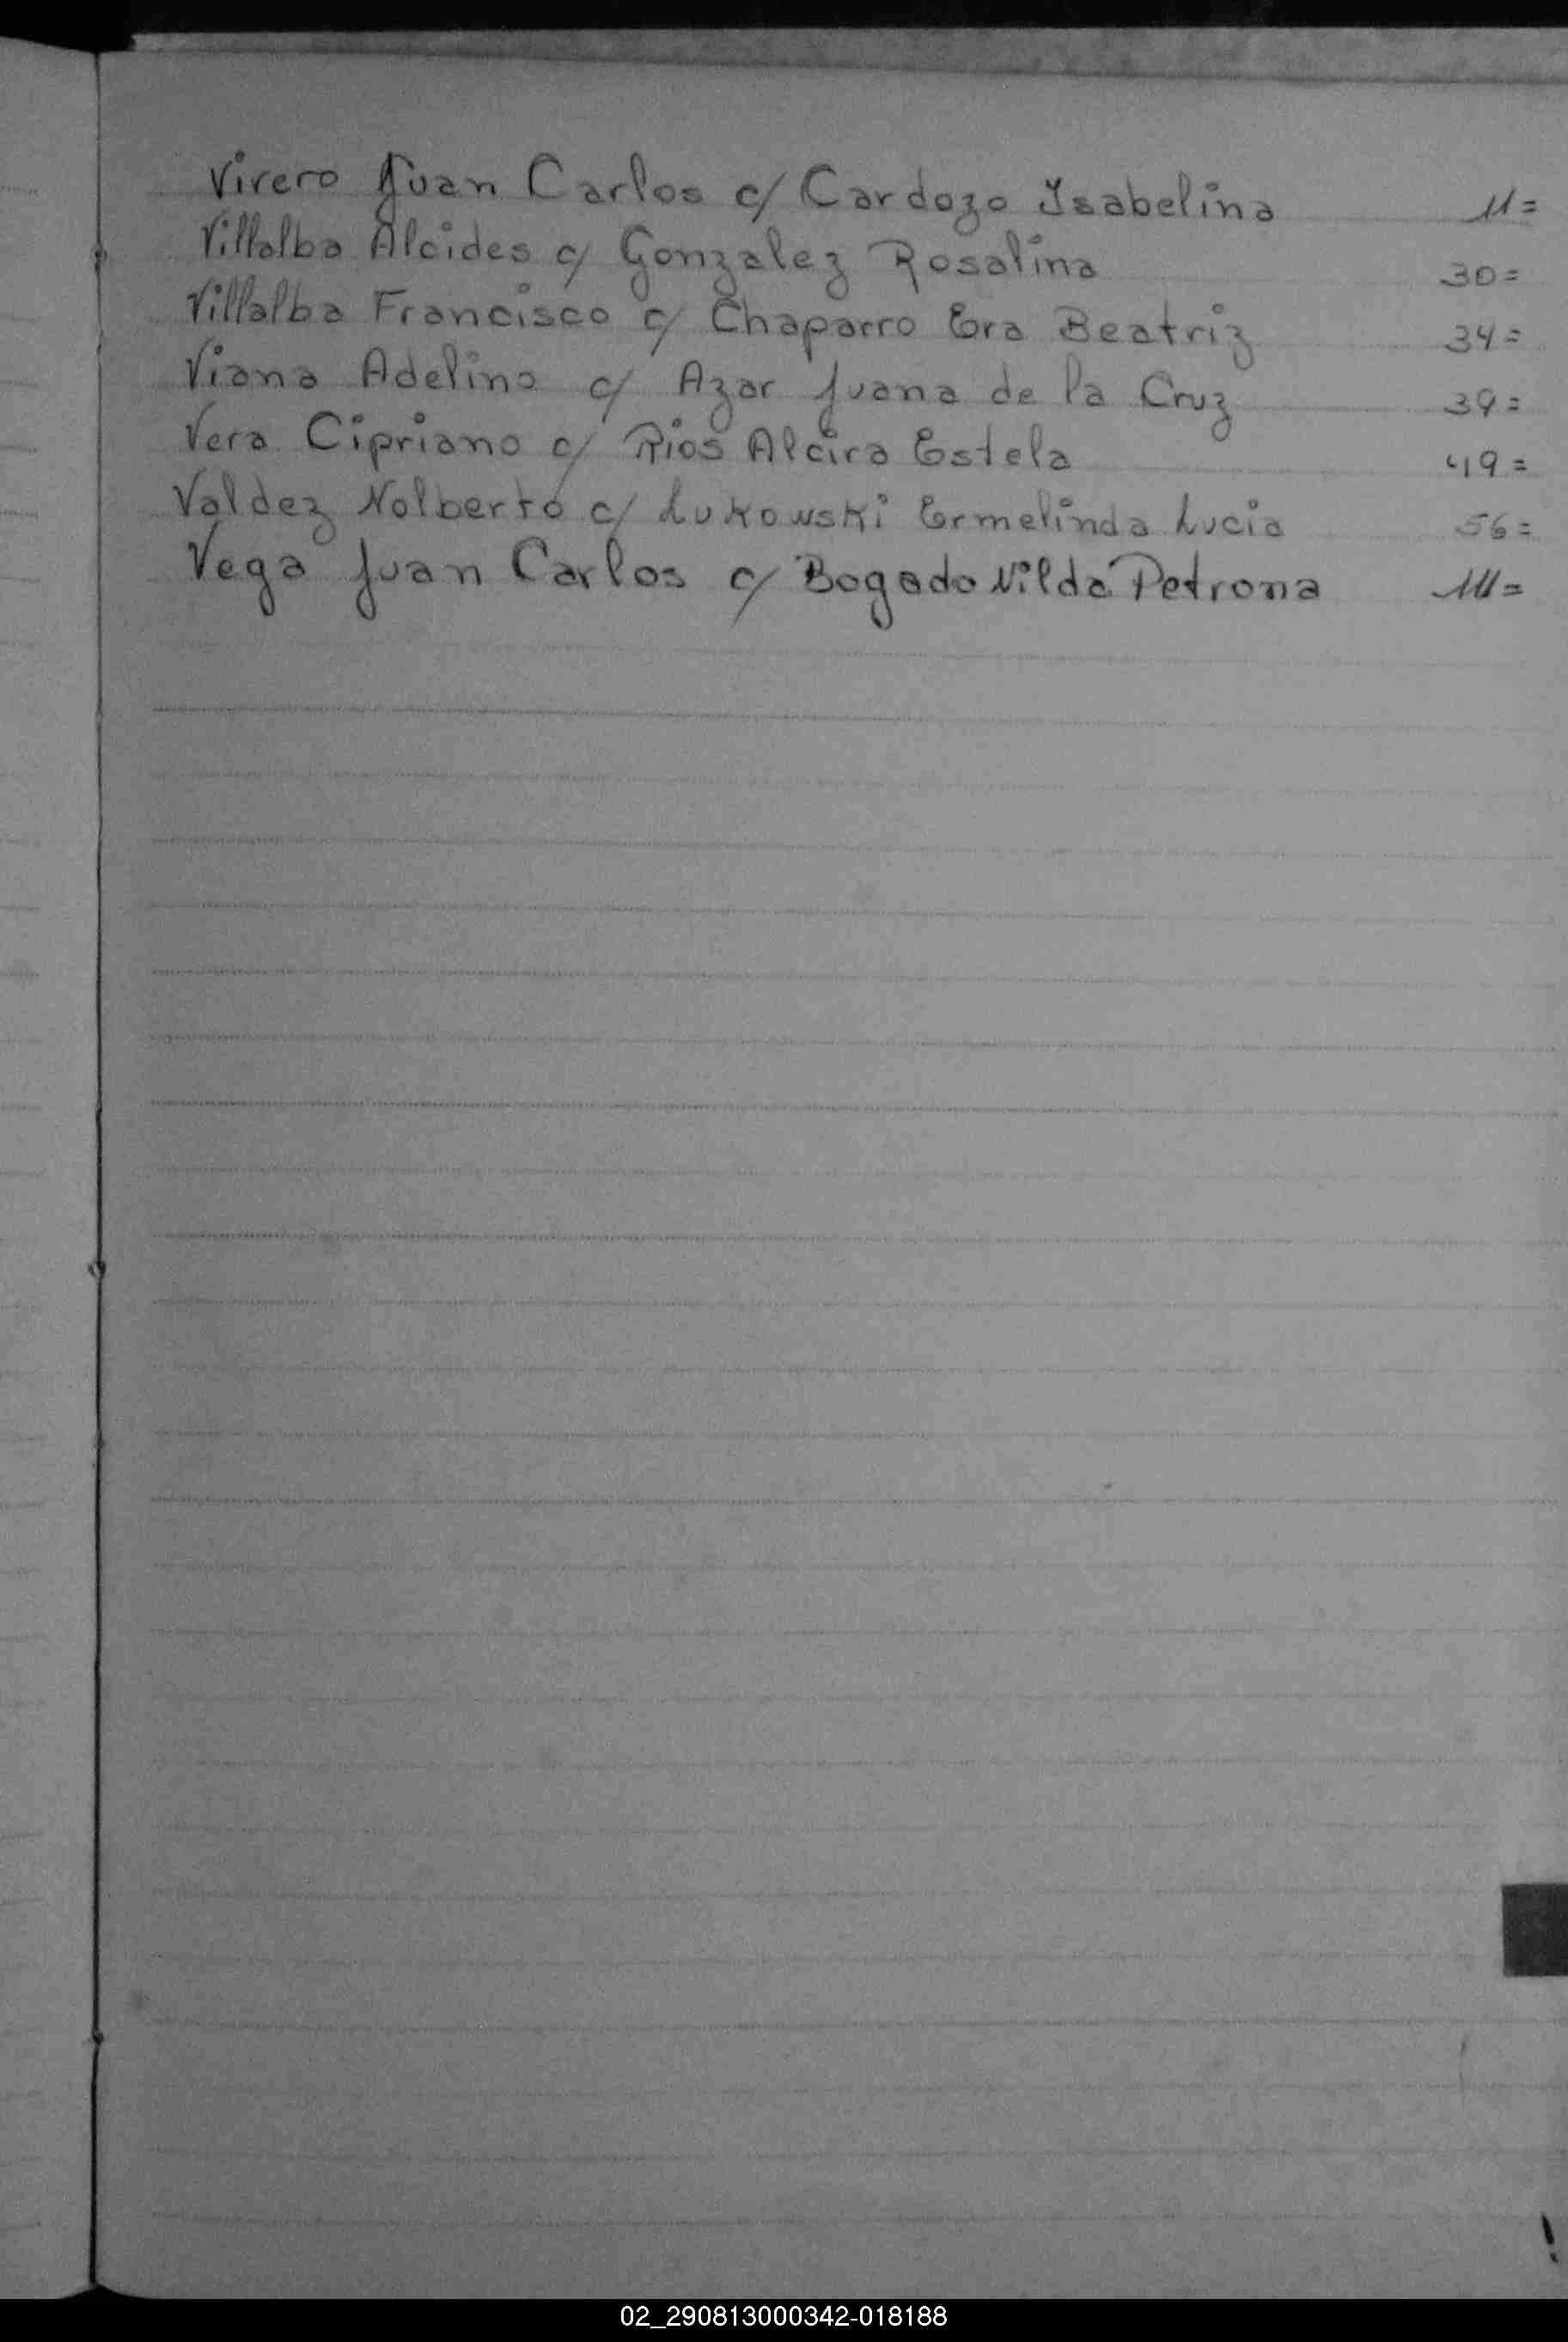 Virero Juan Carlos c/ Cardozo Isabelina 11=
Villalba Alcides c/ Gonzalez Rosalina 30=
Villalba Francisco c/ Chaparro Era Beatriz 34=
Viana Adelino c/ Azar Juana de la Cruz 39=
Vera Cipriano c/ Rios Alcira Estela 49=
Valdez Nolberto c/ Lukowski Ermelinda Lucia 56=
Vega Juan Carlos c/ Bogado Nilda Petrona 111=
02_290813000342-018188